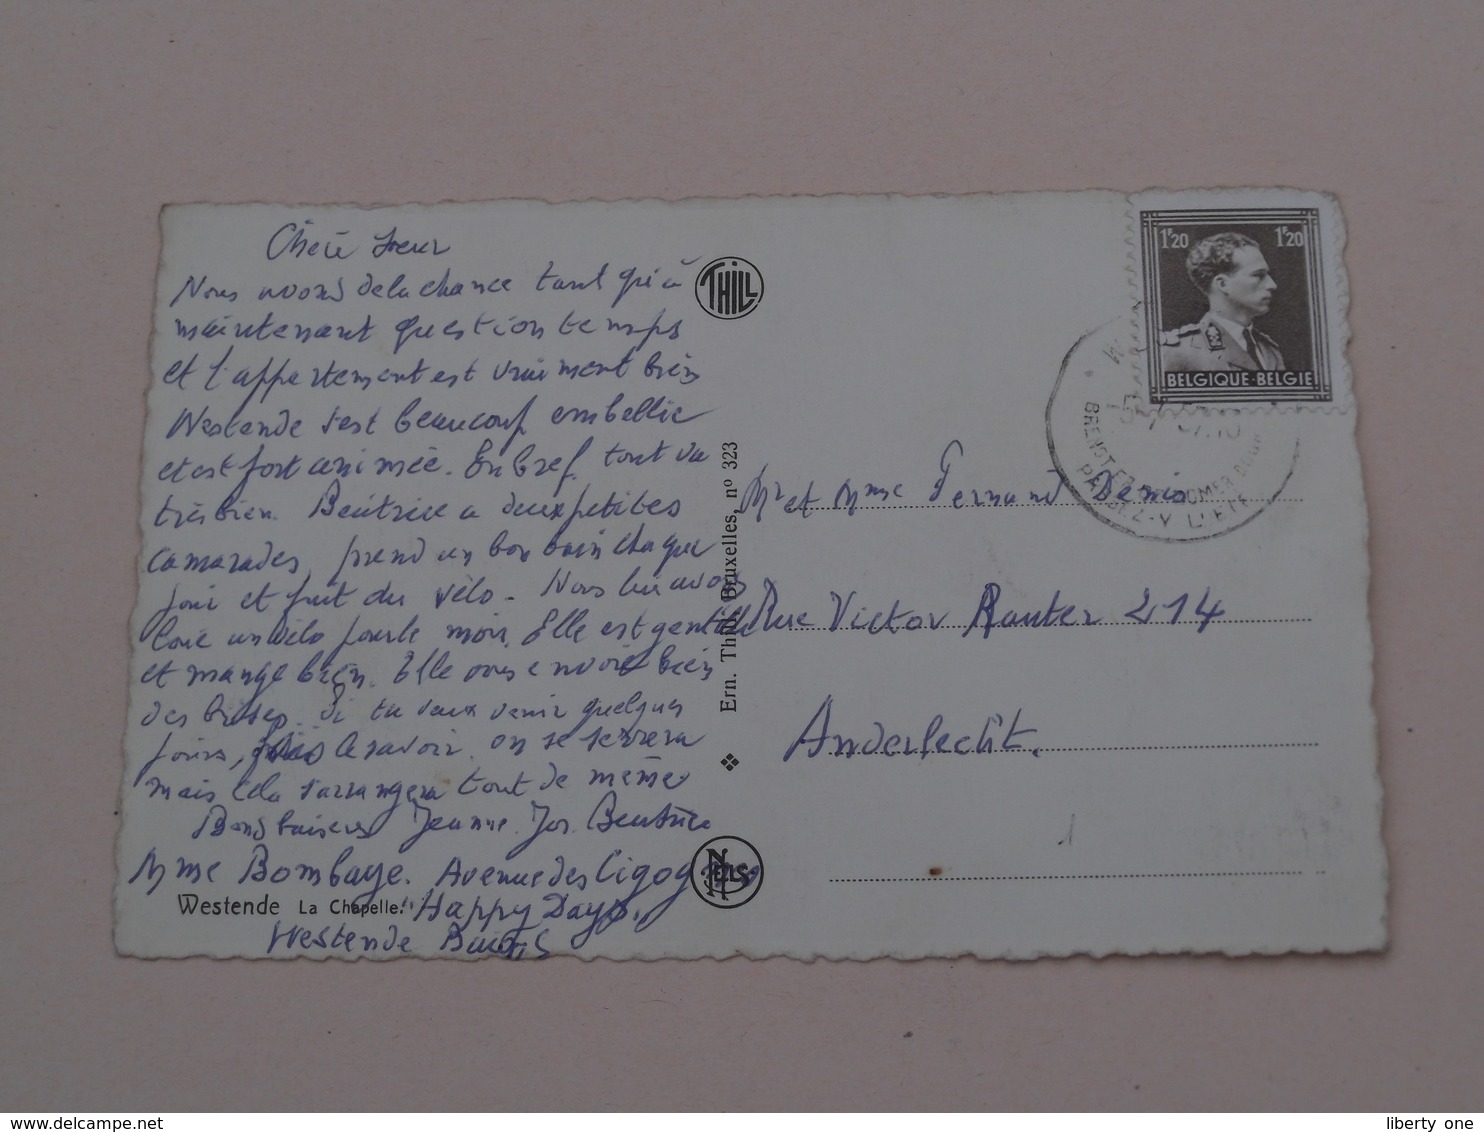 Chère Soeur
Nous avons de la chance tant qu'à
maintenant question temps
et l'appartement est vraiment bien
Westende s'est beaucoup embellie
et est fort animée. En bref tout va
très bien. Béatrice a deux petites
camarades, prend un bon bain chaque
jour et fait du vélo. Nous lui avons
loué un vélo pour le mois. Elle est gentille
et mange bien. Elle vous envoie bien
des baises. Si tu veux venir quelques
jours, fais le savoir. on se serrera
mais cela s'arrangera tout de même
Bons baisers Jeanne. Jos. Beatrice
Mme Bombaye. Avenue des Cigognes
"Happy Days"
Westende Bains
Westende La Chapelle.
THILL
Ern. Thill, Bruxelles, nº 323
NELS
1F20 1F20
BELGIQUE·BELGIE
PASSEZ-Y L'ÉTÉ
Mr et Mme Fernand Denis
Rue Victor Rauter 214
Anderlecht.
liberty one